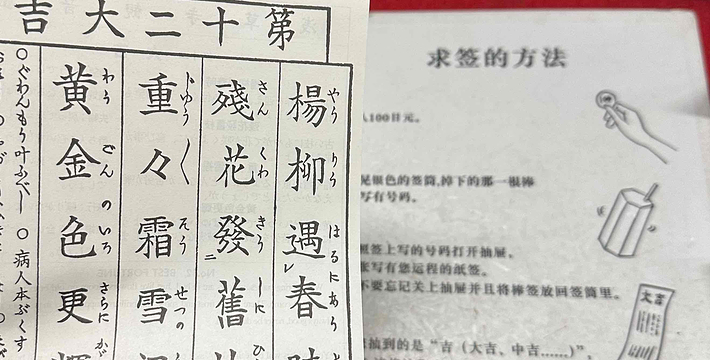 第十二大吉
楊柳遇春
やう りう はるにあう
殘花發舊
さん くわ きう
重々霜雪
ぢゆう そう せつの
黄金色更
わう ごん のいろ さらに
〇ぐわんもう叶ふべし 〇病人本ぶくす
求签的方法
100日元。
是银色的签筒,掉下的那一根棒
写有号码。
照签上写的号码打开抽屉。
张写有您运程的纸签。
不要忘记关上抽屉并且将棒签放回签筒里。
抽到的是“吉（大吉、中吉……）”